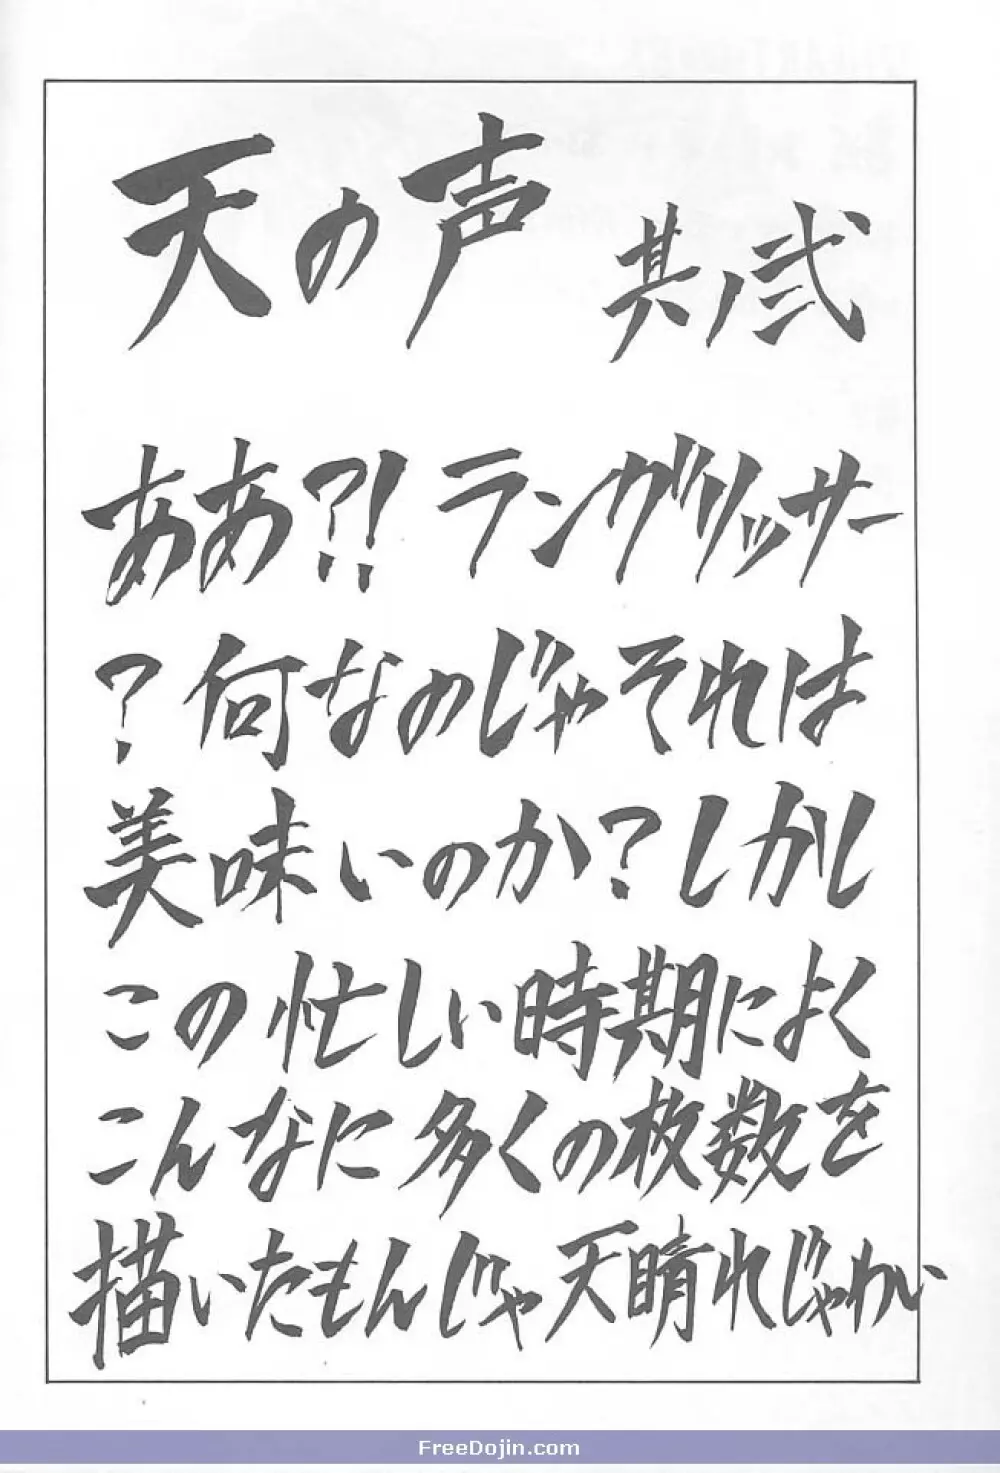 天の声 其ノ弐
ああ?! ラングリッサー
?何なのじゃそれは
美味いのか?しかし
この忙しい時期によく
こんなに多くの枚数を
描いたもんじゃ天晴れじゃわい
FreeDojin.com